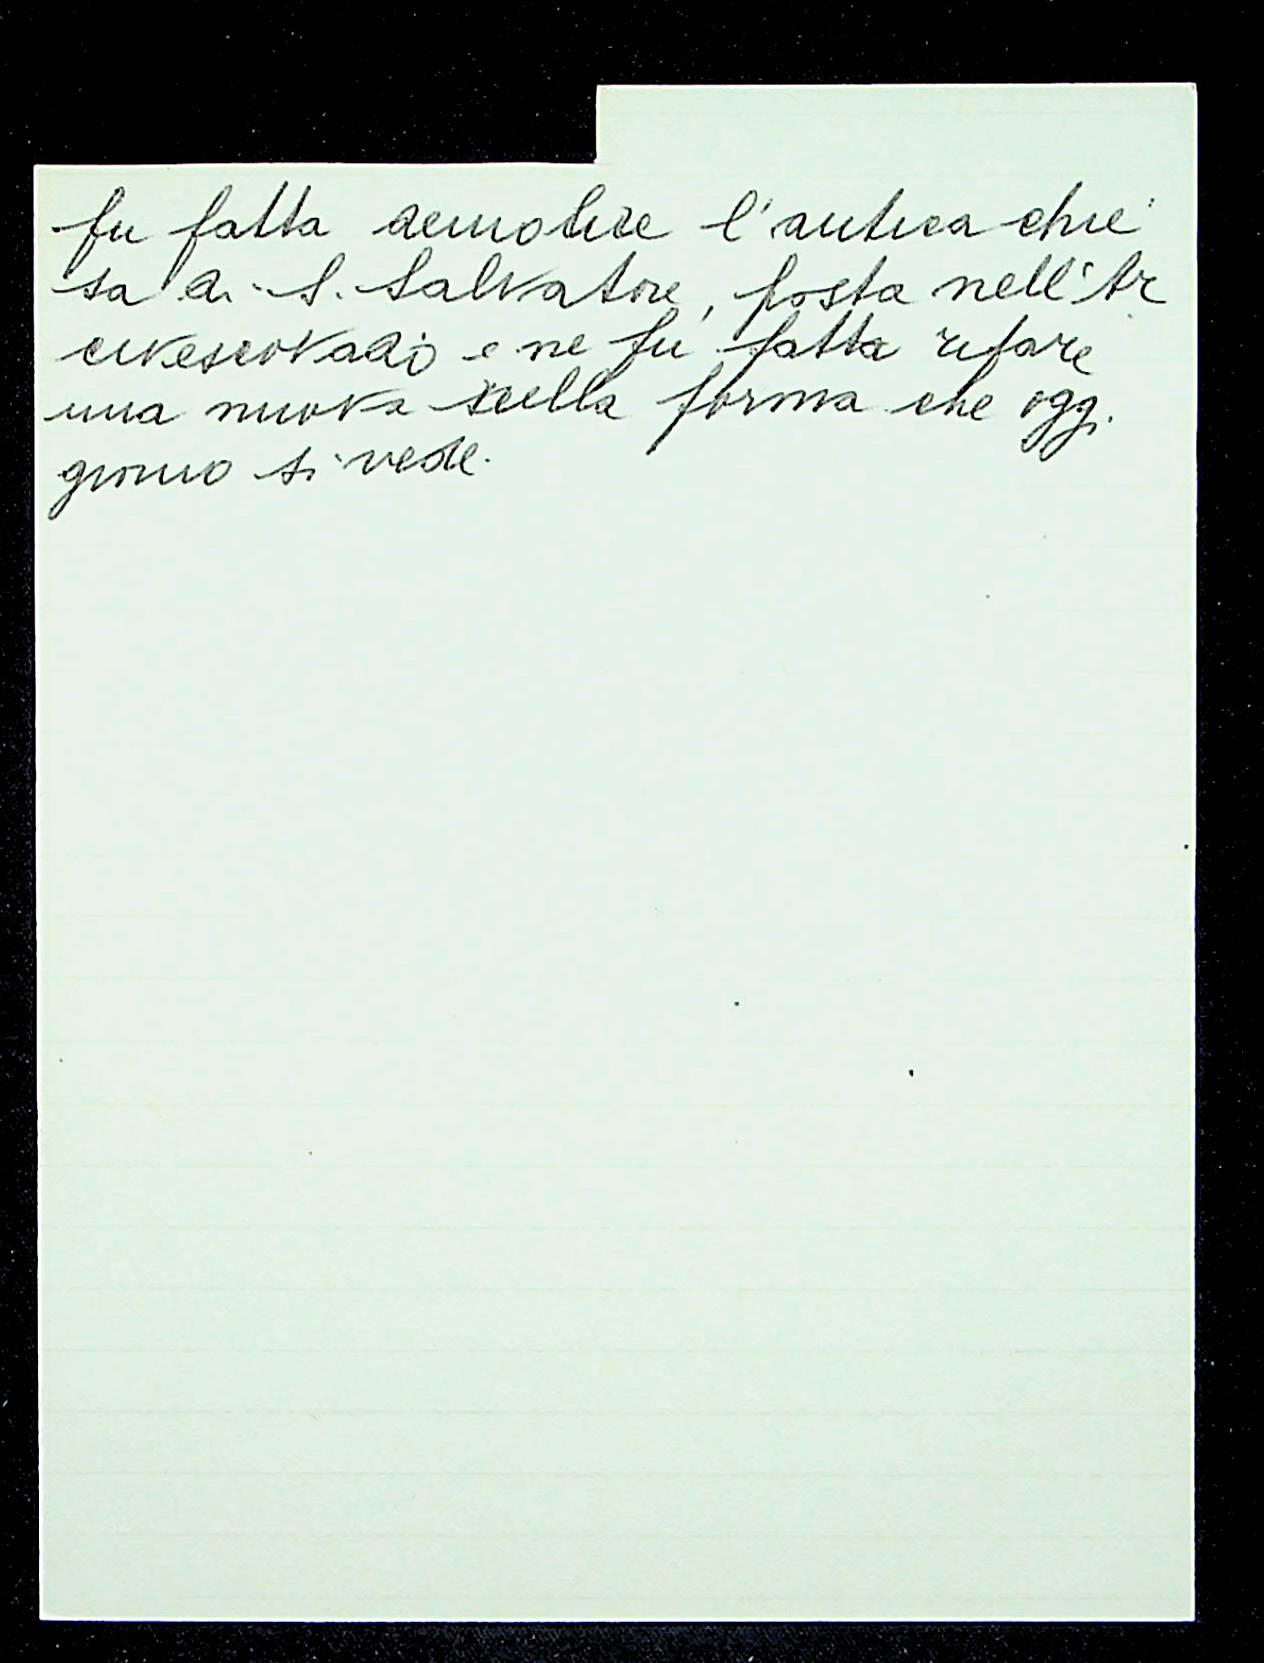 fu fatta demolire l'antica chie
sa di S. Salvatore, posta nell'Ar
civescovado e ne fu fatta rifare
una nuova nella forma che oggi
giorno si vede.